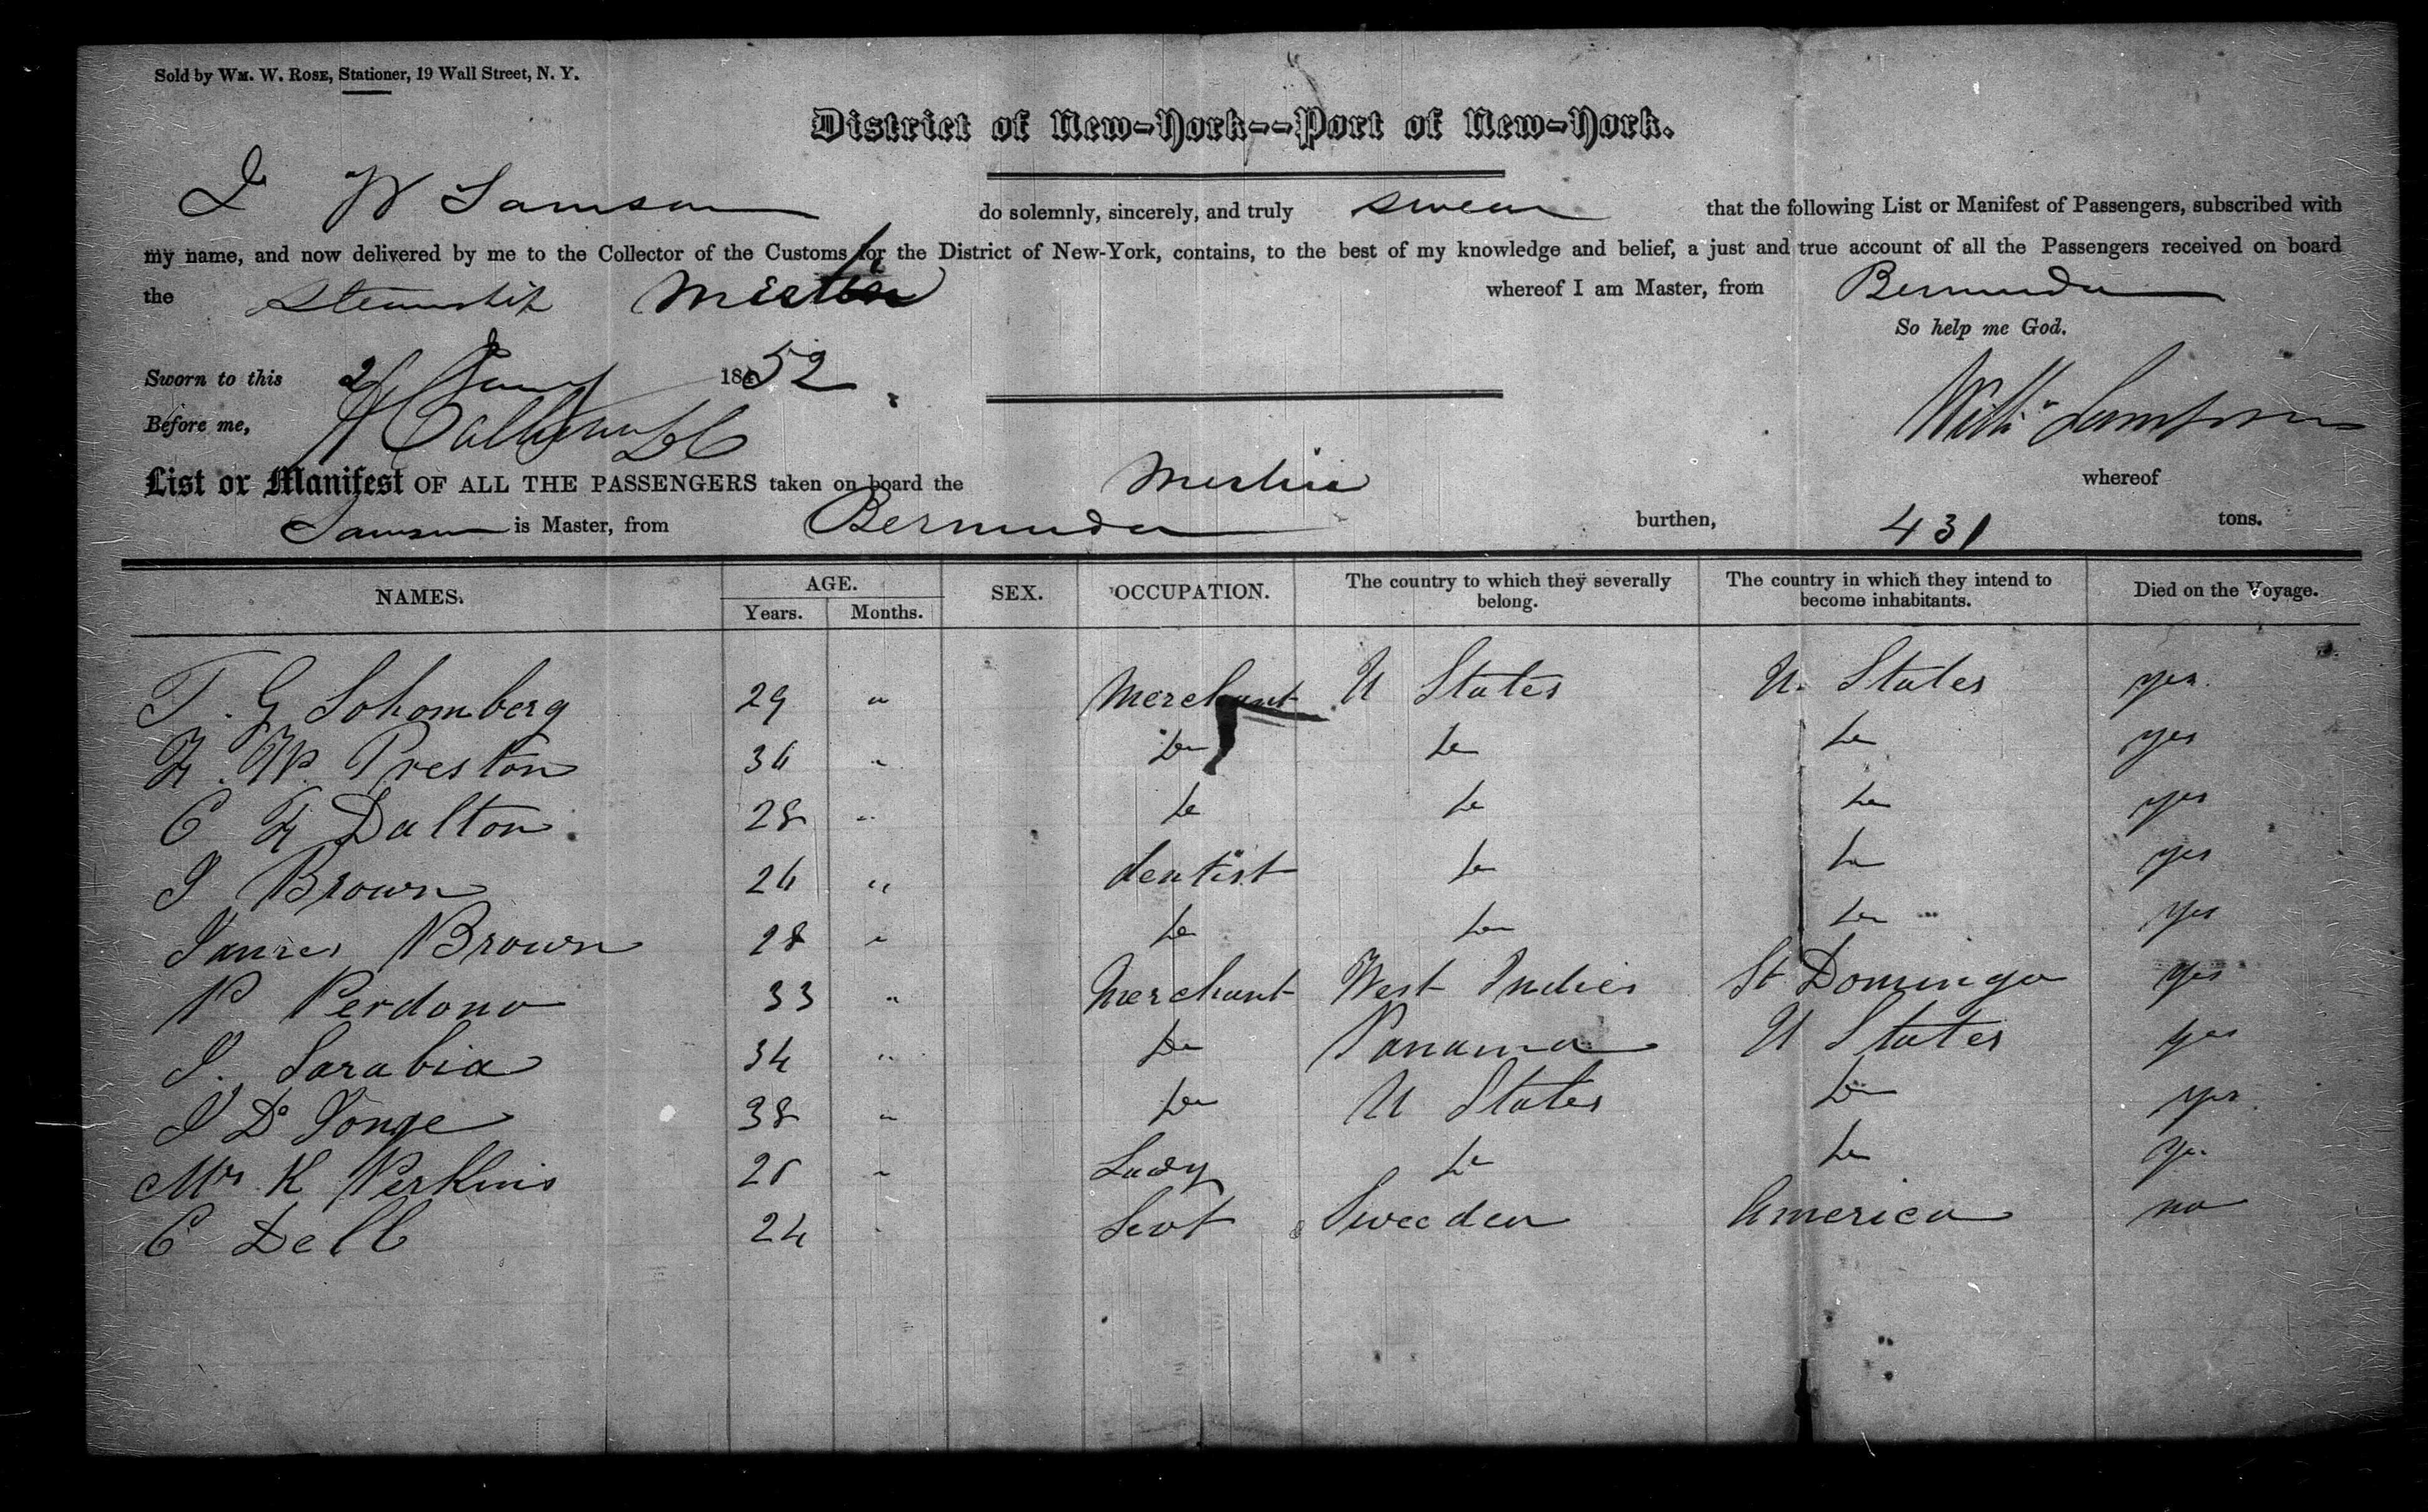 Sold by Wm. W. Rose, Stationer, 19 Wall Street, N. Y.
District of New-York--Port of New-York.
I W Samson do solemnly, sincerely, and truly swear that the following List or Manifest of Passengers, subscribed with
my name, and now delivered by me to the Collector of the Customs for the District of New-York, contains, to the best of my knowledge and belief, a just and true account of all the Passengers received on board
the Steamship Merlin whereof I am Master, from Bermuda
So help me God.
Sworn to this 1852
Before me,
List or Manifest OF ALL THE PASSENGERS taken on board the Merlin whereof
Samson is Master, from Bermuda burthen, 431 tons.
NAMES. AGE. SEX. OCCUPATION. The country to which they severally belong. The country in which they intend to become inhabitants. Died on the Voyage.
Years. Months.
T. G Sohomberg 29 " Merchant U States U. States yes
F. W. Preston 36 " Do Do Do yes
C F Dalton 28 " Do Do Do yes
J Brown 26 " dentist Do Do yes
James Brown 28 " Do Do Do yes
P Perdono 33 " Merchant West Indies St Domingo yes
J. Sarabia 34 " Do Panama U States yes
J De Jonge 38 " Do U States Do yes
Mrs K Perkins " Lady Do Do yes
C Dell 24 " Sweeden America no